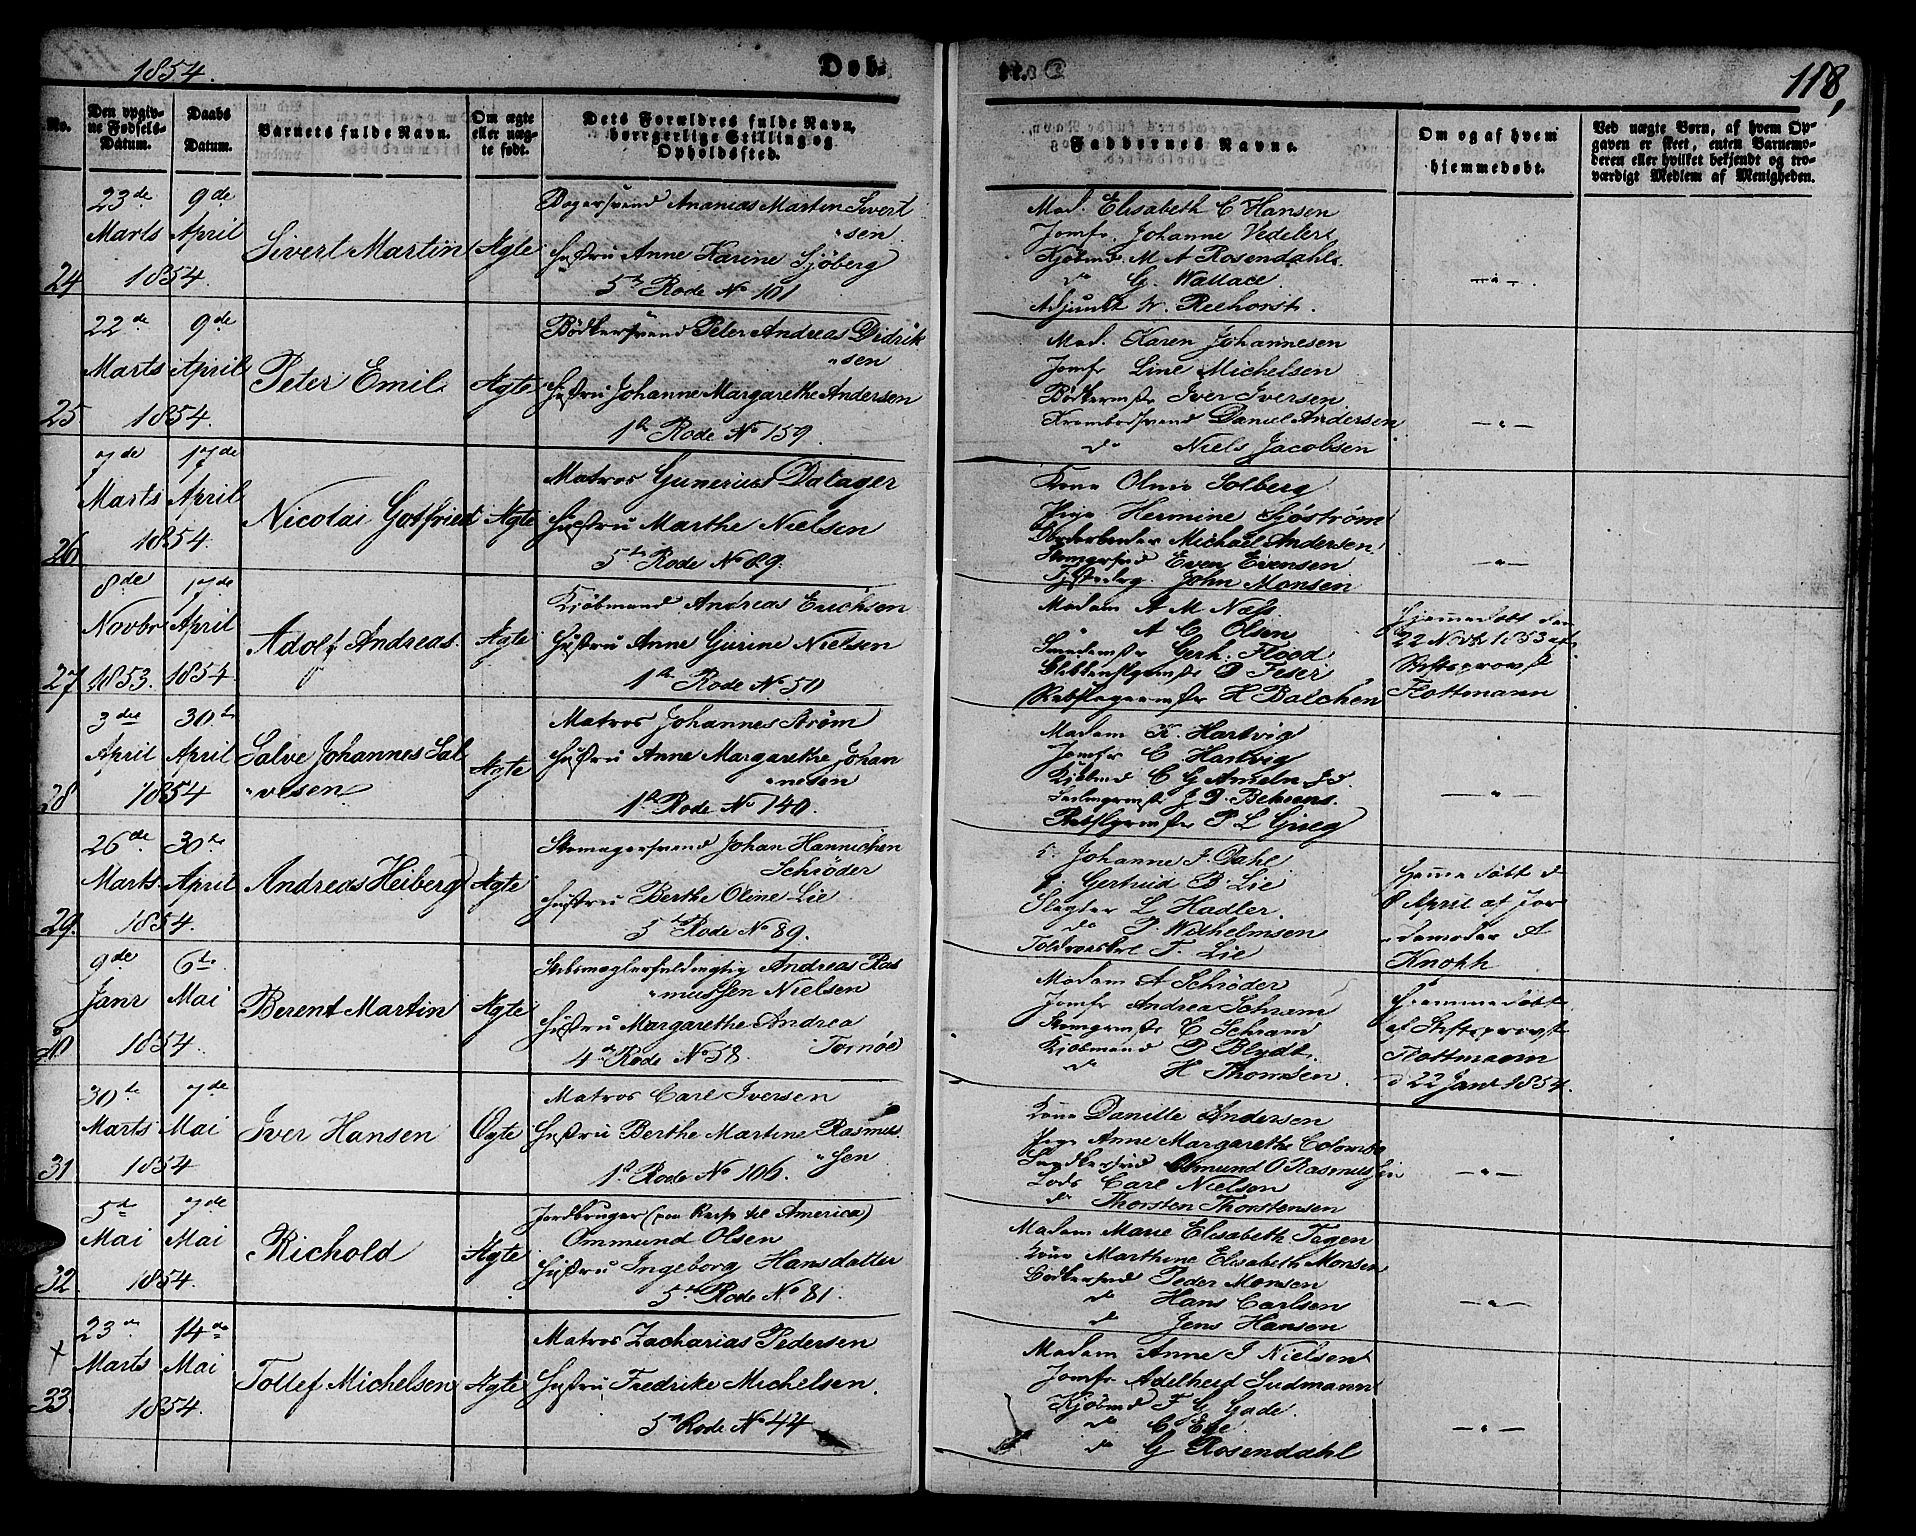 1854.
Døb-
te.
118,
No.
Den opgiv-
ne Fødsels-
Datum.
Daabs
Datum.
Barnets fulde Navn.
Om ægte
eller uæg-
te født.
Dets Forældres fulde Navn,
borgerlige Stilling og
Opholdssted.
Faddernes Navne.
Om og af hvem
hjemmedøbt.
Ved uægte Børn, af hvem Op-
gaven er skeet, enten Barnemo-
deren eller hvilket bekjendt og tro-
værdigt Medlem af Menigheden.
24
23de Marts
9de April
1854.
Sivert Martin
Ægte
Bagersvend Ananias Marten Sivert
"sen
Hustru Anne Karine Sjöberg
5te Rode No 101
Mad. Elisabeth C Hansen
Jomfr. Johanne Vedeler
Kjöbmd M A Rosendahl
do G. Wallace
Adjunkt W. Reehorst
—"—
25
22de Marts
9de April
1854.
Peter Emil
Ægte
Bödkersvend Peter Andreas Didrik
"sen
Hustru Johanne Margarethe Andersen
1ste Rode No 159.
Mad. Karen Johannesen
Jomfr Line Michelsen
Bödkermstr Iver Iversen
Daniel Andersen
do Niels Jacobsen
—"—
26
7de Marts
17de April
1854.
Nicolai Gotfried
Ægte
Matros Gunerius Dalager
Hustru Marthe Nielsen
5te Rode No 89.
Kone Oline Solberg
Pige Hermine Sjöström
Michael Andersen
Even Evensen
John Monsen
—"—
27
8de Novbr 1853.
17de April 1854
Adolf Andreas.
Ægte
Kjöbmand Andreas Erichsen
Hustru Anne Gurine Nielsen
1ste Rode No 50
Madam A M Næss
A C Olsen
Smedemstr Gerh. Flood
D Feser
Rebslagermstr H Balchen
Hjemmedöbt den
22 Novbr 1853 af
Stiftsprovst
Flottmann
28
3die April
30te April
1854
Salve Johannes Sal
"vesen
Ægte
Matros Johannes Ström
Hustru Anne Margarethe Johan
"nesen
1ste Rode No 140.
Madam K. Hartvig
Jomfr C Hartvig
Kjöbmd C G Ameln
J D. Behrens.
Rebslgrmstr P L Grieg
—"—
29.
26de Marts
30te April
1854.
Andreas Heiberg
Ægte
Skomagersvend Johan Hannichen
Schröder
Hustru Berthe Oline Lie
5te Rode No 89.
Johanne J. Dahl
Gertrud B. Lie
Slagter L Hadler.
do P. Wilhelmsen
T. Lie
Hjemmedöbt d
8 April af Jor
"demoder A
Knohh
30
9de Janr
6te Mai
1854.
Berent Martin
Ægte
Skibsmæglerfuldmægtig Andreas Ras
"mussen Nielsen
Hustru Margarethe Andrea
Tornöe
4de Rode No 58.
Madam A Schröder
Jomfr Andrea Schram
C Schram
Kjöbmand D Blydt.
do H Thomsen.
Hjemmedöbt
af Stiftsprovst
Flottmann
d 22 Janr 1854.
31
30te Marts
7de Mai
1854
Iver Hansen
Ægte
Matros Carl Iversen
Hustru Berthe Martine Rasmus
"sen
1ste Rode No 106.
Kone Danille Andersen
Pige Anne Margarethe Colombo
Omund O Rasmussen
Lods Carl Nielsen
do Thorsten Thorstensen
—"—
32
5te Mai
7de Mai
1854.
Richold
Ægte
Jordbruger (paa Reise til America)
Ommund Olsen
Hustru Ingeborg Hansdatter
5te Rode No 81.
Madam Marie Elisabeth Fagen
Kone Marthine Elisabeth Monsen
Bödkersvd Peder Monsen
do Hans Carlsen
do Jens Hansen
—"—
+
33.
23de Marts
14de Mai
1854.
Tollef Michelsen
Ægte
Matros Zacharias Pedersen
Hustru Fredrike Michelsen.
5te Rode No 44
Madam Anne J Nielsen
Jomfr Adelheid Sudmann
Kjöbmd F G Gade.
do C Ege
do G Rosendahl
—"—